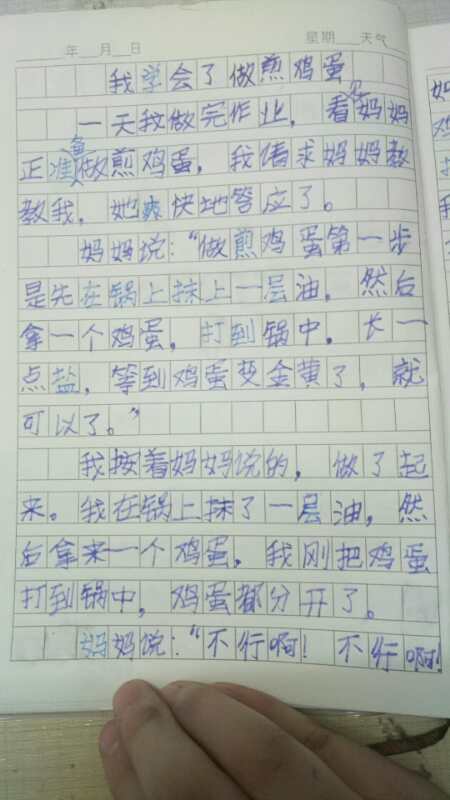 年 月 日 星期 天气
我学会了做煎鸡蛋
一天我做完作业，看见妈妈
正准备做煎鸡蛋，我请求妈妈教
教我，她爽快地答应了。
妈妈说：“做煎鸡蛋第一步
是先在锅上抹上一层油，然后
拿一个鸡蛋，打到锅中，长一
点盐，等到鸡蛋变金黄了，就
可以了。”
我按着妈妈说的，做了起
来。我在锅上抹了一层油，然
后拿来一个鸡蛋，我刚把鸡蛋
打到锅中，鸡蛋都分开了。
妈妈说：“不行啊！不行啊！